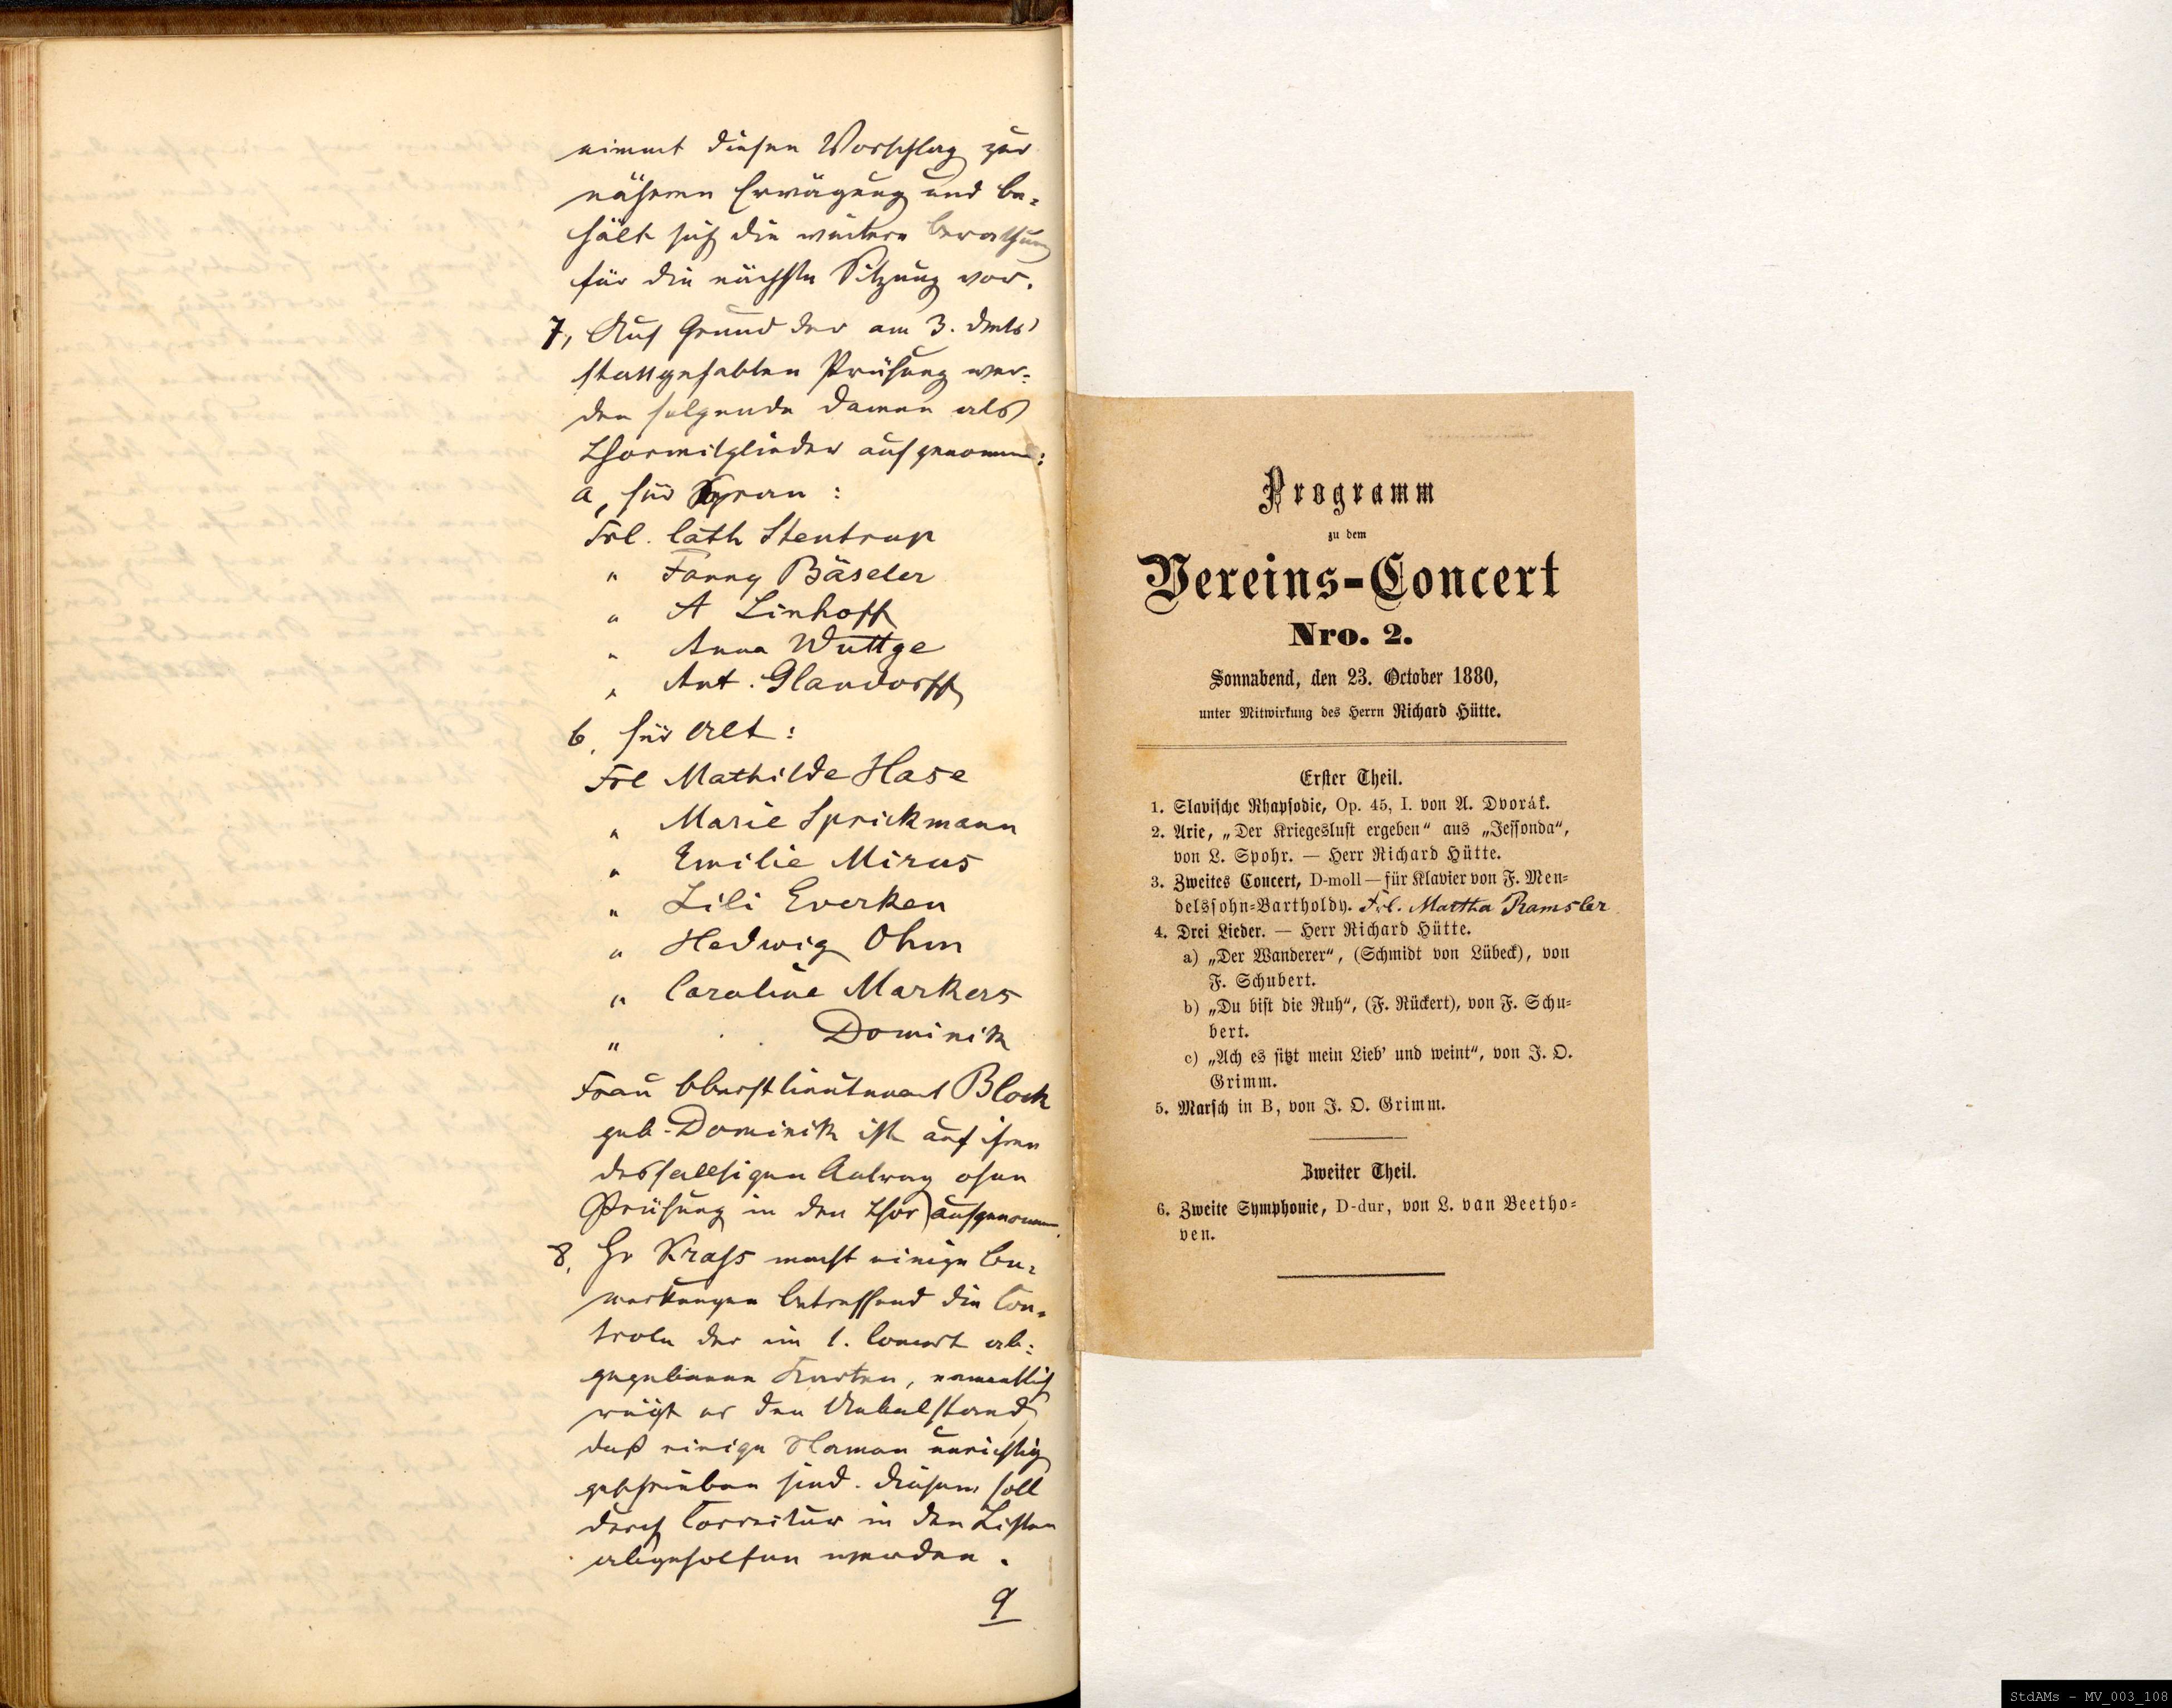 nimmt diesen Vorschlag zur
näheren Erwägung und be-
hält sich die weitere Berathung
für die nächste Sitzung vor.
7, Auf Grund der am 3. dmts
stattgehabten Prüfung wer-
den folgende Damen als
Chormitglieder aufgenommen:
a, für Sopran:
Frl. Cath Stentrup
" Fanny Bäseler
" A Linhoff
" Anna Wuttge
" Ant. Glandorff
b, für Alt:
Frl Mathilde Hase
" Marie Sprickmann
" Emilie Mirus
" Lili Everken
" Hedwig Ohm
" Caroline Markers
" Dominik
Frau Oberstlieutenant Block
geb. Dominik ist auf ihren
desfallsigen Antrag ohne
Prüfung in den Chor aufgenommen.
8, Hr Krass macht einige Be-
merkungen betreffend die Con-
trole der im 1. Concert ab-
gegebenen Karten, namentlich
rügt er den Uebelstand,
daß einige Namen unrichtig
geschrieben sind. Diesem soll
durch Correctur in den Listen
abgeholfen werden.
9
Programm
zu dem
Vereins-Concert
Nro. 2.
Sonnabend, den 23. October 1880,
unter Mitwirkung des Herrn Richard Hütte.
Erster Theil.
1. Slavische Rhapsodie, Op. 45, I. von A. Dvorák.
2. Arie, „Der Kriegeslust ergeben“ aus „Jessonda“,
von L. Spohr. — Herr Richard Hütte.
3. Zweites Concert, D-moll — für Klavier von F. Men-
delssohn-Bartholdy. Frl. Martha Ramsler
4. Drei Lieder. — Herr Richard Hütte.
a) „Der Wanderer“, (Schmidt von Lübeck), von
F. Schubert.
b) „Du bist die Ruh“, (F. Rückert), von F. Schu-
bert.
c) „Ach es sitzt mein Lieb’ und weint“, von J. O.
Grimm.
5. Marsch in B, von J. O. Grimm.
Zweiter Theil.
6. Zweite Symphonie, D-dur, von L. van Beetho-
ven.
StdAMs - MV_003_108